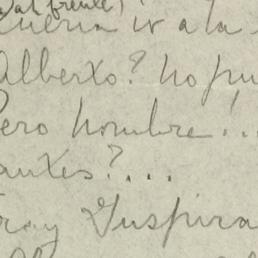 al frente)
queria ir a la
Alberto? No pu
Pero hombre...
antes?....
Fray Inspira